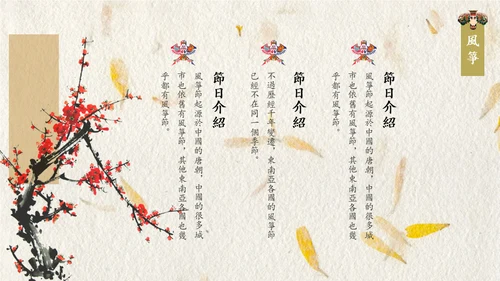 風箏
節日介紹
風箏節起源於中國的唐朝，中國的很多城
市也依舊有風箏節，其他東南亞各國也幾
乎都有風箏節。
節日介紹
不過歷經千年變遷，東南亞各國的風箏節
已經不在同一個季節。
節日介紹
風箏節起源於中國的唐朝，中國的很多城
市也依舊有風箏節，其他東南亞各國也幾
乎都有風箏節。